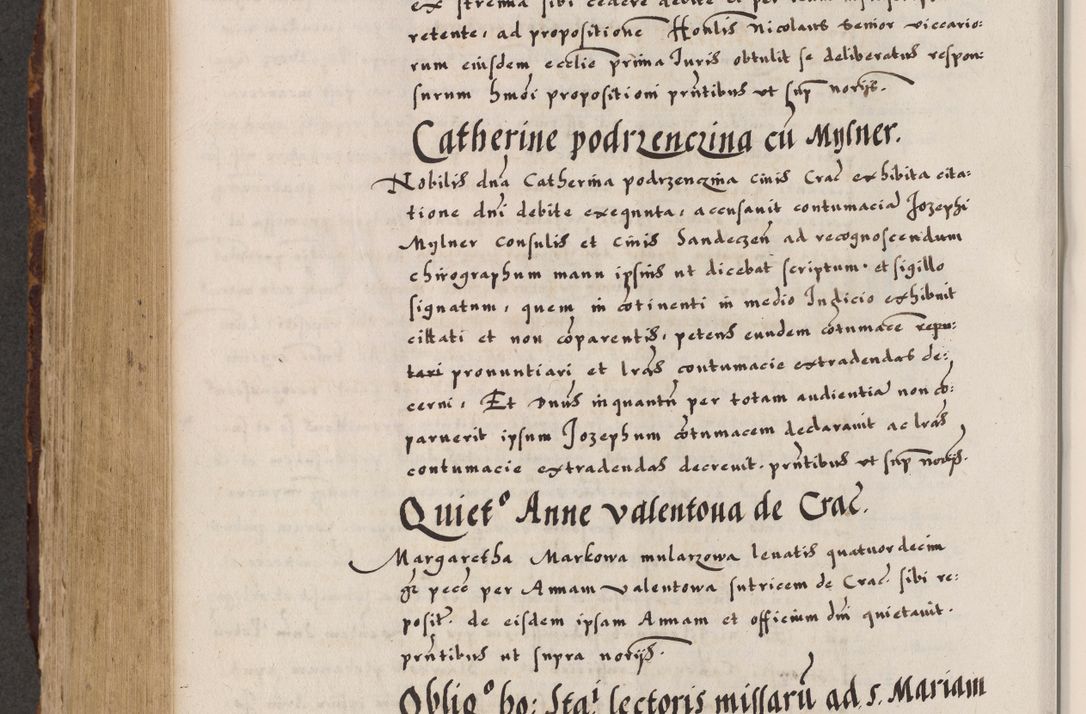 retente, ad propositionē Honlis Nicolaus Senior viccario:
rum eiusdem ecclie prima Iuris obtulit se deliberatus respon:
surum hmōi propositioni prn̄tibus vt sup̄ norijs.
Catherine podrzenczina cū Mylner.
Nobilis dn̄a Catherina podrzenczina civis Crac̄ exhibita cita:
tione dn̄i debite exequuta, accusauit contumaciā Jozephi
Mylner Consulis et Civis Sandeczen̄ ad recognoscendum
chirographum manu ipsius ut dicebat scriptum. et sigillo
signatum, quem in cōtinenti in medio Iudicio exhibuit
cittati et non cōparentis, petens eundem cōtumacē repu:
tari pronuntiari et lr̄as contumacie extradendas de:
cerni, Et Dnūs inquantū per totam audientiā non cō:
paruerit ipsum Jozephum cōtumacem declarauit ac lrās
contumacie extradendas decreuit. prn̄tibus vt sup̄ norijs.
Quietº Anne valentoua de Crac̄.
Margaretha Markowa mularzowa leuatis quatuordecim
gr̄ pecc̄ per Annam valentowa sutricem de Crac̄ sibi re:
posit̄. de eisdem ipsam Annam et officium dn̄i quietauit.
prn̄tibus ut supra norijs.
Obligº ho: Sta.ⁱ lectoris missarū ad s. Mariam